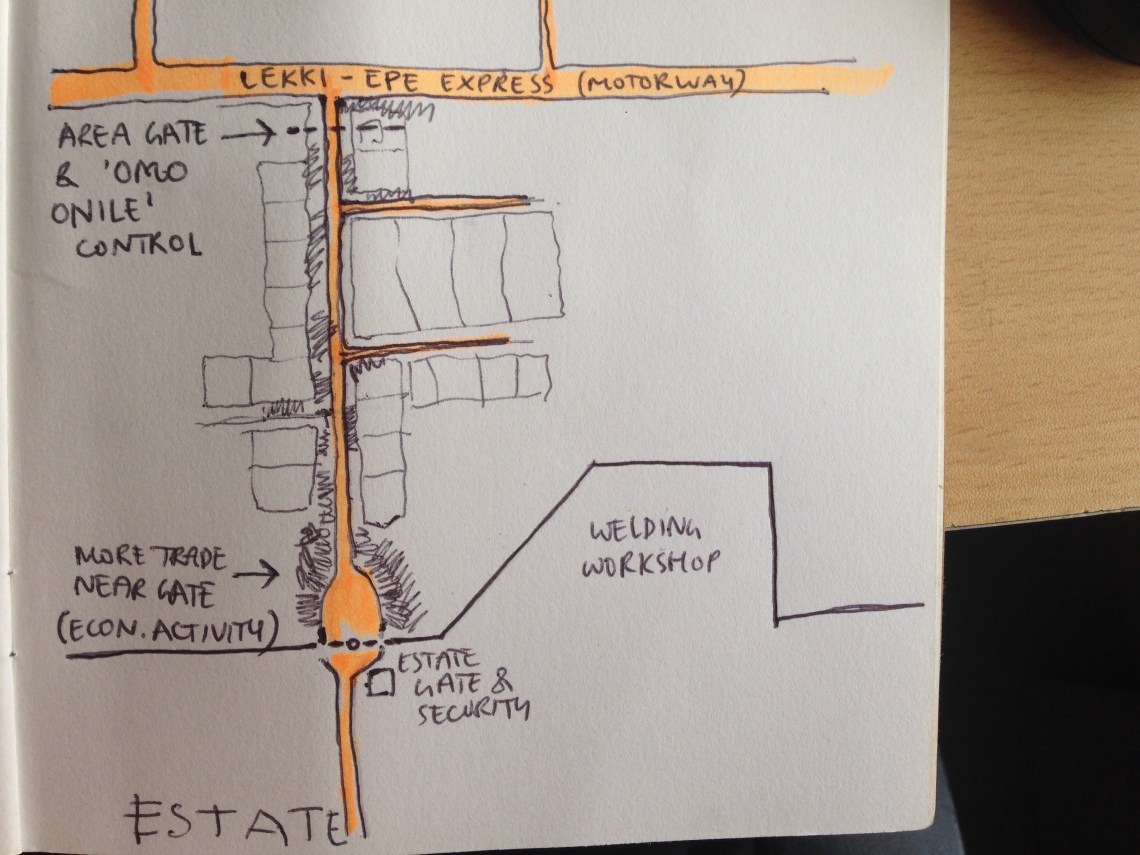 LEKKI - EPE EXPRESS (MOTORWAY)
AREA GATE
& 'OMO
ONILE'
CONTROL
WELDING
WORKSHOP
MORE TRADE
NEAR GATE
(ECON. ACTIVITY)
ESTATE
GATE &
SECURITY
ESTATE